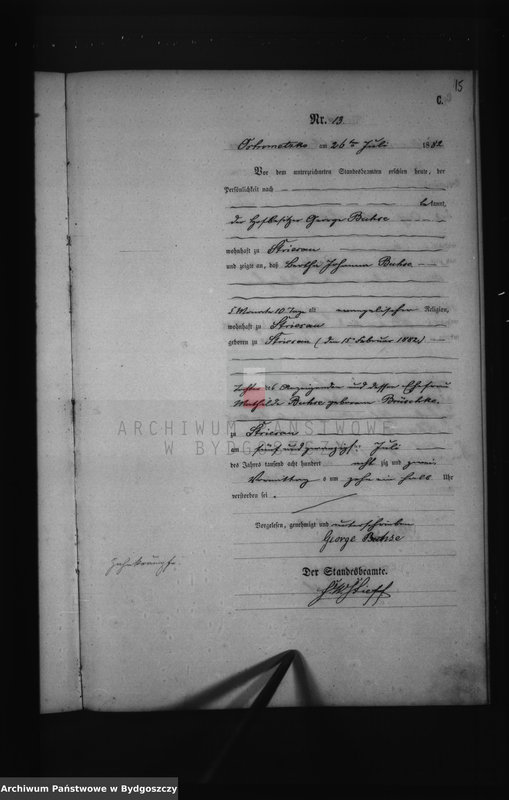 15
C.
Nr. 13
am 26ten Juli 1882
Vor dem unterzeichneten Standesbeamten erschien heute, der
Persönlichkeit nach
bekannt,
der Hofbesitzer George Buhse
wohnhaft zu Striesau
und zeigte an, daß Bertha Johanna Buhse
5 Monate 10 Tage alt evangelischer Religion,
wohnhaft zu Striesau
geboren zu Striesau (den 15 Februar 1882)
Tochter des Anzeigenden und dessen Ehefrau
Mathilde Buhse geborene
zu Striesau
am fünf und zwanzigsten Juli
des Jahres tausend acht hundert acht zig und zwei
Vormittag s um zehn ein halb Uhr
verstorben sei.
Vorgelesen, genehmigt und unterschrieben
George Buhse
Zahnkrämpfe.
Der Standesbeamte.
ARCHIWUM PAŃSTWOWE
W BYDGOSZCZY
Archiwum Państwowe w Bydgoszczy